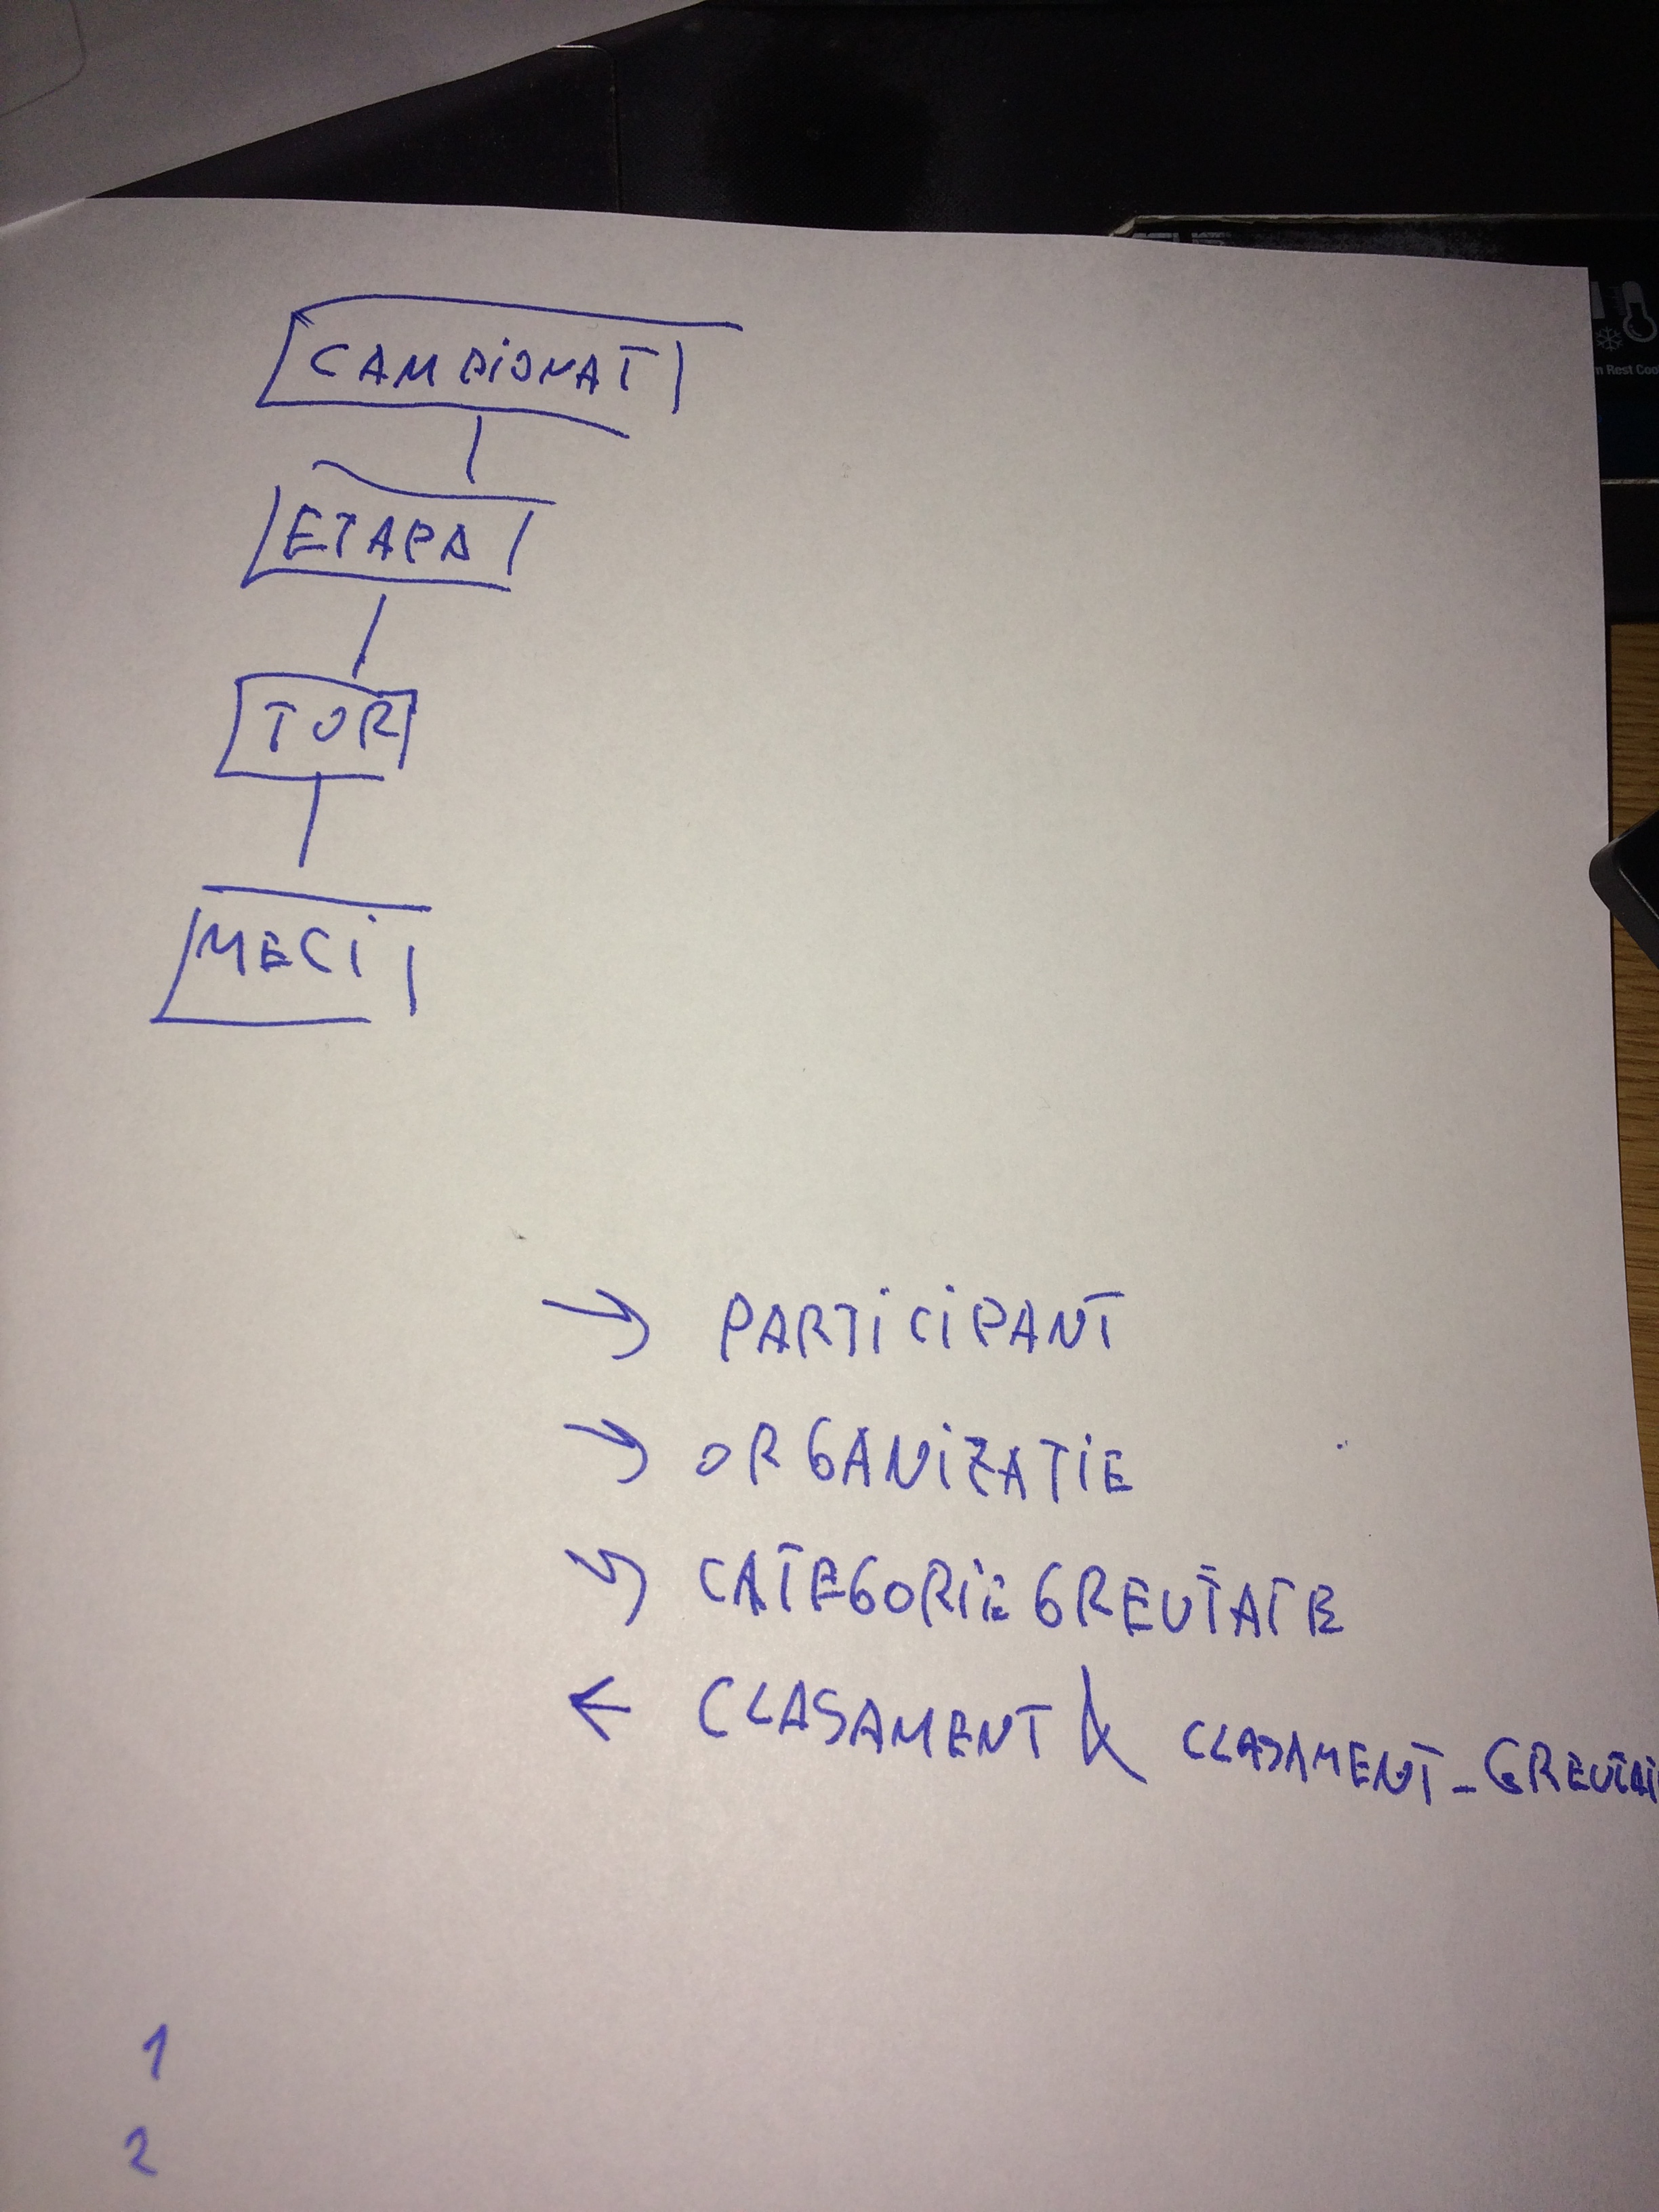 CAMPIONAT
ETAPA
TUR
MECI
→ PARTICIPANT
→ ORGANIZATIE
→ CATEGORIE GREUTATE
← CLASAMENT & CLASAMENT_GREUTAT
1
2
m Rest Coo